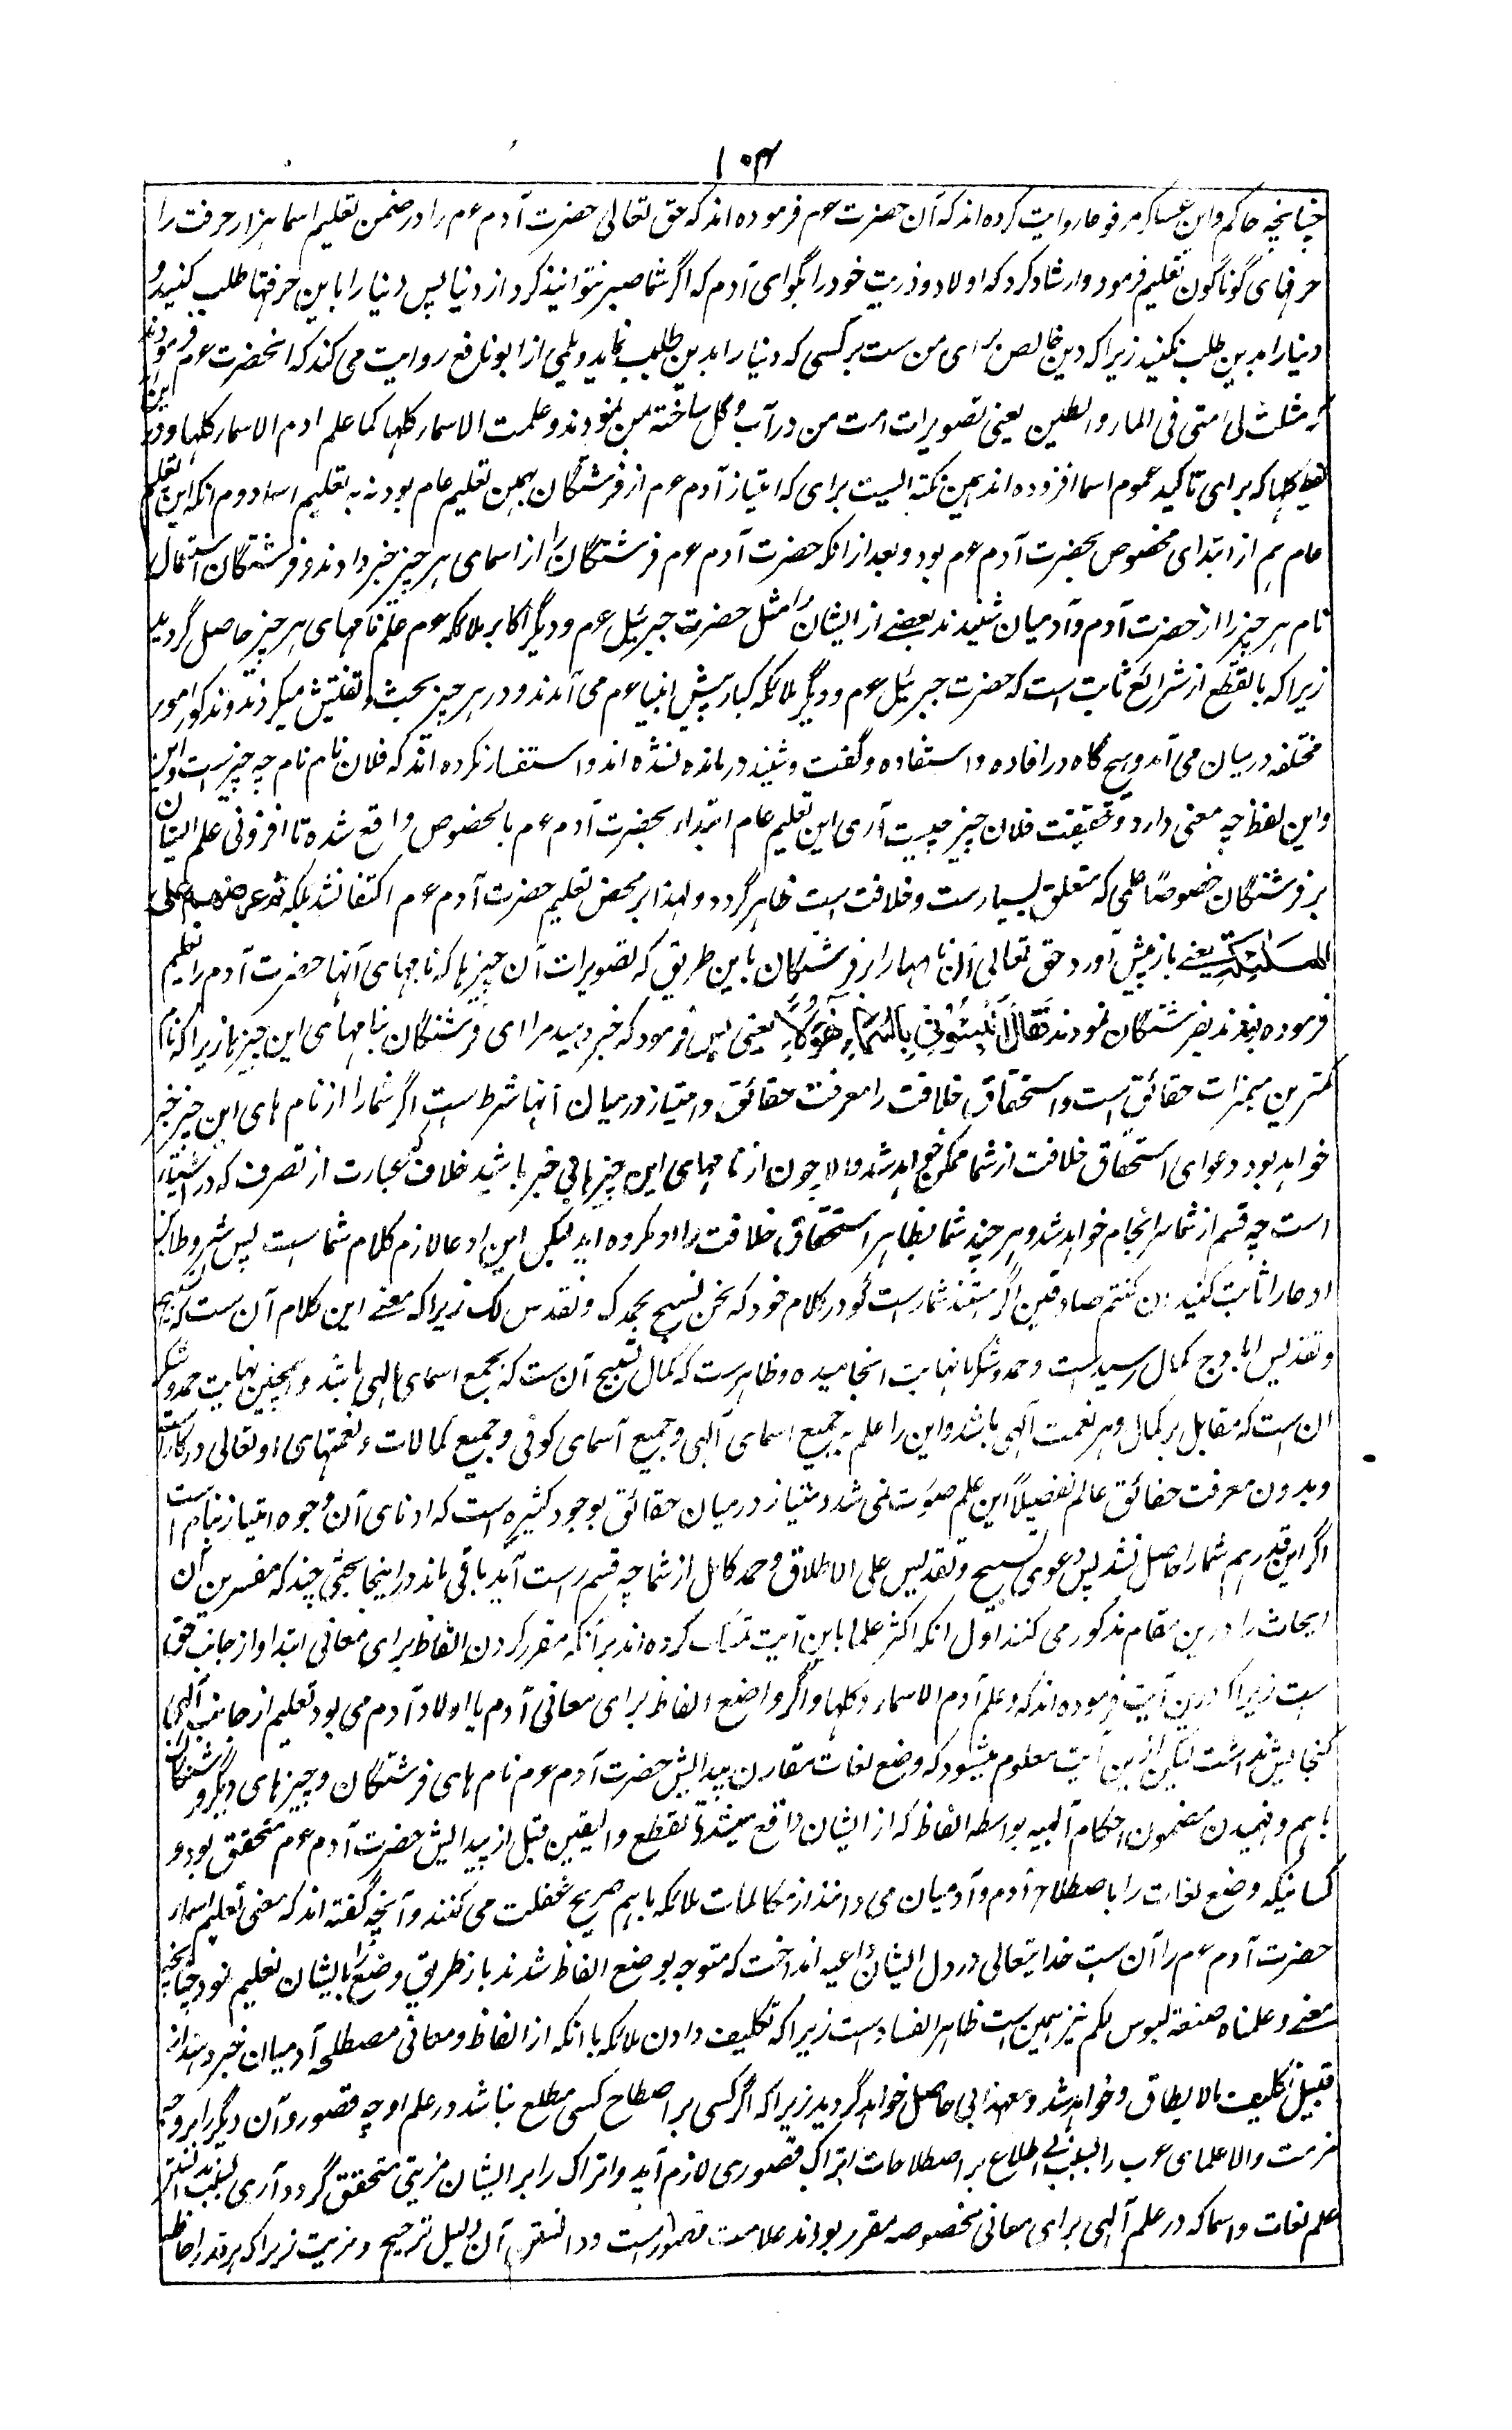 ۱۰۴
چنانچه حاکم و ابن عساکر مرفوعا روایت کرده اند که آن حضرت عم فرموده اند که حق تعالی حضرت آدم عم را در ضمن تعلیم اسما هزار حرفت را
حرفهای گوناگون تعلیم فرمود و ارشاد کرد که اولاد و ذریت خود را بگو ای آدم که اگر شما صبر نتوانید کرد از دنیا پس دنیا را باین حرفتها طلب کنید و
دنیا را بدین طلب نکنید زیرا که دین خالص برای من ست بر کسی که دنیا را بدین طلب نماید و دیلمی از ابو نافع روایت می کند که آنحضرت عم فرمودند
که مثلت لی امتی فی الماء والطین یعنی تصویرات امت من در آب و گل ساخته بمن نمودند و علمت الاسماء کلها کما علم آدم الاسماء کلها و درین
لفظ کلها که برای تاکید عموم اسما افزوده اند همین نکته ایست برای که امتیاز آدم عم از فرشتگان بهمین تعلیم عام بود نه به تعلیم اسما دوم آنکه این تعلیم
عام هم از ابتدای مخصوص بحضرت آدم عم بود و بعد از انکه حضرت آدم عم فرشتگان را از اسمای هر چیز خبر دادند و فرشتگان استعمال
نام هر چیز را از حضرت آدم و آدمیان شنیدند بعضے از ایشان را مثل حضرت جبرئیل عم و دیگر اکابر ملائکه عم علم نامهای هر چیز حاصل گردید
زیرا که بالقطع از شرائع ثابت است که حضرت جبرئیل عم و دیگر ملائکه کبار پیش انبیا عم می آمدند و در هر چیز بحث و تفتیش میکردند و مذکور امور
مختلفه در میان می آمد و هیچ گاه در افاده و استفاده و گفت و شنید درمانده نشده اند و استفسار نکرده اند که فلان نام نام چه چیز ست و این
و این لفظ چه معنی دارد و حقیقت فلان چیز چیست آری این تعلیم عام ابتداء بحضرت آدم عم بالخصوص واقع شده تا افزونی علم ایشان
بر فرشتگان خصوصًا علمی که متعلق بسیارست و خلافت است ظاهر گردد و لهذا بر محض تعلیم حضرت آدم عم اکتفا نشد بلکه ثم عرضهم علی
الملئکة یعنے باز پیش آورد حق تعالی آن نامها را بر فرشتگان باین طریق که تصویرات آن چیزها که نامهای آنها حضرت آدم را تعلیم
فرموده بودند بفرشتگان نمودند فَقَالَ أَنْبِئُونِي بِأَسْمَاءِ هَؤُلَاءِ یعنی پس فرمود که خبر دهید مرا ای فرشتگان بنامهای این چیزها زیرا که نام
کمترین ممیزات حقائق است و استحقاق خلافت را معرفت حقائق و امتیاز درمیان آنها شرط ست اگر شما را از نام های این چیز خبر
خواهد بود دعوای استحقاق خلافت از شما ممکن خواهد شد والا چون از نامهای این چیزها بی خبر باشید خلافت که عبارت از تصرف در اشیاء
است چه قسم از شما سرانجام خواهد شد و هر چند شما بظاهر استحقاق خلافت را ادعا نکرده اید لیکن این ادعا لازم کلام شما ست پس
ادعا را ثابت کنید ان کنتم صادقین اگر هستید شما راست گو در کلام خود که نحن نسبح بحمدک و نقدس لک زیرا که معنے این کلام آن ست که تسبیح
و تقدیس ما باوج کمال رسیده است و حمد و شکر ما نهایت انجامیده و ظاهرست که کمال تسبیح آن ست که بجمیع اسمای الهی باشد و همچنین نهایت حمد و شکر
آن ست که مقابل هر کمال و هر نعمت الهی باشد و این را علم به جمیع اسمای الهی و جمیع اسمای کونی و جمیع کمالات و نعمتهای او تعالی درکار است
و بدون معرفت حقائق عالم تفصیلاً این علم صورت نمی شد و امتیاز درمیان حقائق بوجوه کثیره است که ادنای آن وجوه امتیاز بنام است
اگر این قدر هم شما را حاصل نشد پس دعوی تسبیح و تقدیس علی الاطلاق و حمد کامل از شما چه قسم راست آید باقی ماند در اینجا بحثی چند که مفسرین آن
ابحاث را درین مقام مذکور می کنند اول آنکه اکثر علما باین آیت تمسک کرده اند بر آنکه مقرر کردن الفاظ برای معانی ابتدا و از جانب حق
ست زیرا که درین آیت فرموده اند که و علم آدم الاسماء کلها و اگر واضع الفاظ برای معانی آدم یا اولاد آدم می بود تعلیم از جانب الهی
گنجایش نداشت لیکن ازین آیت معلوم میشود که وضع لغات مقارن پیدایش حضرت آدم عم نام های فرشتگان و چیزهای دیگر و فرشتگان
باهم و فهمیدن مضمون احکام الهیه بواسطه الفاظ که از ایشان واقع میشد بالقطع و الیقین قبل از پیدایش حضرت آدم عم متحقق بود و
کسانیکه وضع لغات را باصطلاح آدم و آدمیان می دانند از مکالمات ملائکه باهم صریح غفلت می کنند و آنچه گفته اند که معنی تعلیم اسماء
حضرت آدم عم را آن ست خدا یتعالی در دل ایشان داعیه انداخت که متوجه بوضع الفاظ شدند باز طریق وضع را بایشان تعلیم نمود چنانچه
معنے و علمناه صنعة لبوس لکم نیز همین ست ظاهر الفساد ست زیرا که تکلیف دادن ملائکه باآنکه از الفاظ و معانی مصطلحه آدمیان خبر دهند از
قبیل تکلیف مالایطاق خواهد شد و معهذا بی حاصل خواهد گردید زیرا که اگر کسی بر اصطلاح کسی مطلع نباشد در علم او چه قصور و آن دیگر را بر وی چه
مزیت والا علمای عرب را بسبب بی اطلاع بر اصطلاحات اتراک قصوری لازم آید و اتراک را بر ایشان مزیتی متحقق گردد آری
علم لغات و اسما که در علم الهی برای معانی مخصوصه مقرر بودند علامت قصور است و دانستن آن دلیل ترجیح و مزیت زیرا که هر قدر احاطه